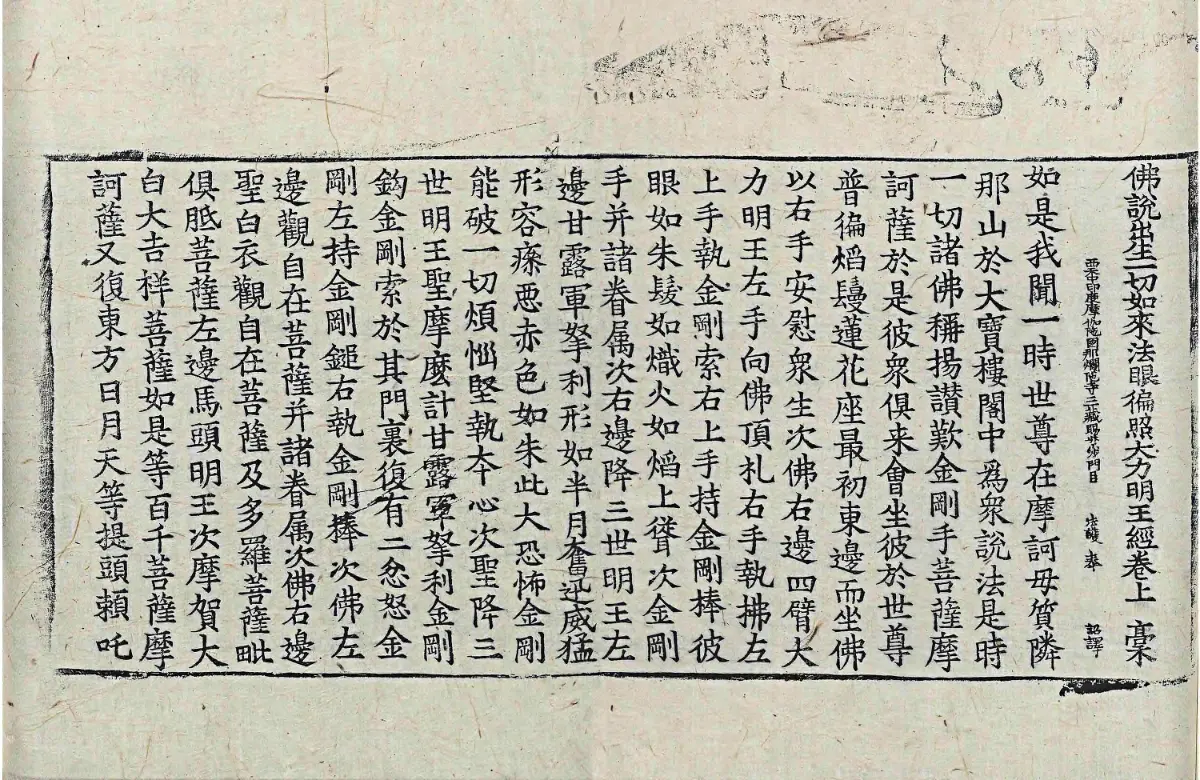 佛說出生一切如來法眼徧照大力明王經卷上 槀
西天中印度摩伽陁國那爛陁寺三藏賜紫沙門臣 法護 奉 詔譯
如是我聞一時世尊在摩訶毋質隣
那山於大寶樓閣中為衆說法是時
一切諸佛稱揚讃歎金剛手菩薩摩
訶薩於是彼衆俱来會坐彼於世尊
普徧熖鬘蓮花座最初東邊而坐佛
以右手安慰衆生次佛右邊四臂大
力明王左手向佛頂礼右手執拂左
上手執金剛索右上手持金剛棒彼
眼如朱髮如熾火如熖上聳次金剛
手并諸眷属次右邊降三世明王左
邊甘露軍拏利形如半月奮迅威猛
形容瘵惡赤色如朱此大恐怖金剛
能破一切煩惱堅執夲心次聖降三
世明王聖摩麼計甘露軍拏利金剛
鈎金剛索於其門裏復有二忿怒金
剛左持金剛鎚右執金剛棒次佛左
邊觀自在菩薩并諸眷属次佛右邊
聖白衣觀自在菩薩及多羅菩薩毗
俱胝菩薩左邊馬頭明王次摩賀大
白大吉祥菩薩如是等百千菩薩摩
訶薩又復東方日月天等提頭頼吒